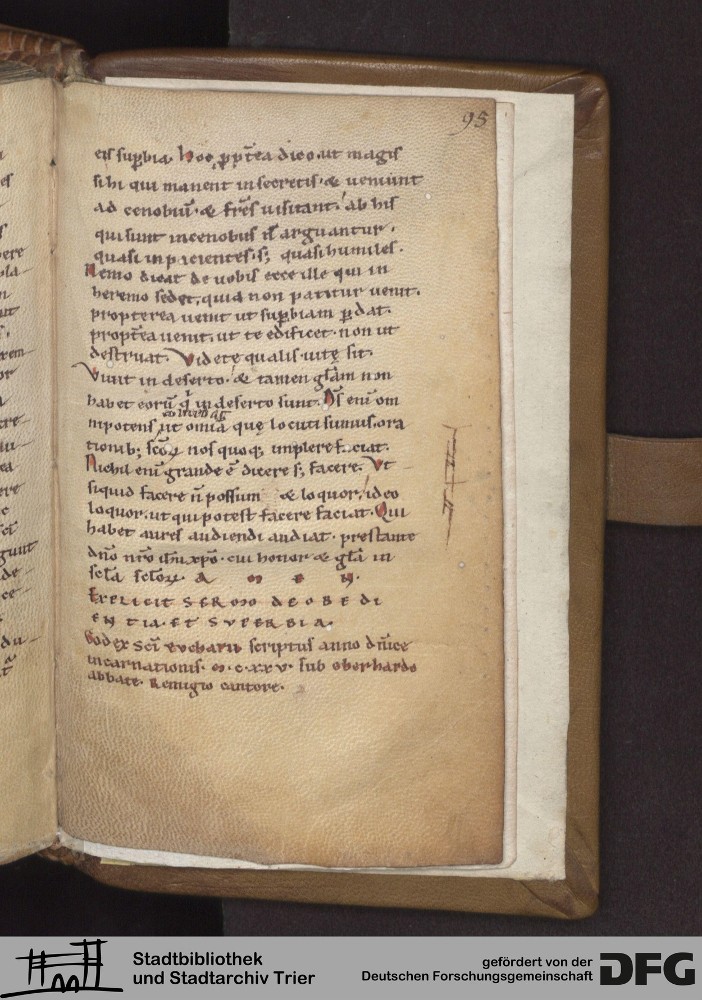 95
eis suꝑbia. Hoc ꝓpt̄ea dico. ut magis
si hi qui manent in secretis. & ueniunt
ad cenobiū. & fr̄es uisitant. ab his
qui sunt in cenobiis arguantur.
quasi inpacientes. s; quasi humiles.
Nemo dicat de uobis ecce ille qui in
heremo sedet. quia non patitur uenit.
propterea uenit ut suꝑbiam ꝑdat.
propt̄ea uenit. ut te edificet. non ut
destruat. Videte qualis uitę sit.
Viuit in deserto. & tamen gl̄am non
habet eorū q̇ in deserto sunt. Ds̄ enī om
nipotens ut omīa quę locuti sumus. ora
tionib; scōꝝ nos quoq; implere faciat.
Nichil enī grande ē dicere s; facere. Vt
siquid facere n̄ possum & loquor. ideo
loquor. ut qui potest facere faciat. Qui
habet aures audiendi audiat. prestante
dn̄o nr̄o ih̄u xp̄o. cui honor & gl̄a in
sc̄la sc̄loꝝ. A M E N.
EXPLICIT SERMO DE OBEDI
ENTIA. ET SVPERBIA.
Codex sc̄i eucharii scriptus anno dn̄ice
incarnationis. m. c. xx v. sub eberhardo
abbate. Remigio cantore.
Stadtbibliothek
und Stadtarchiv Trier
gefördert von der
Deutschen Forschungsgemeinschaft
DFG